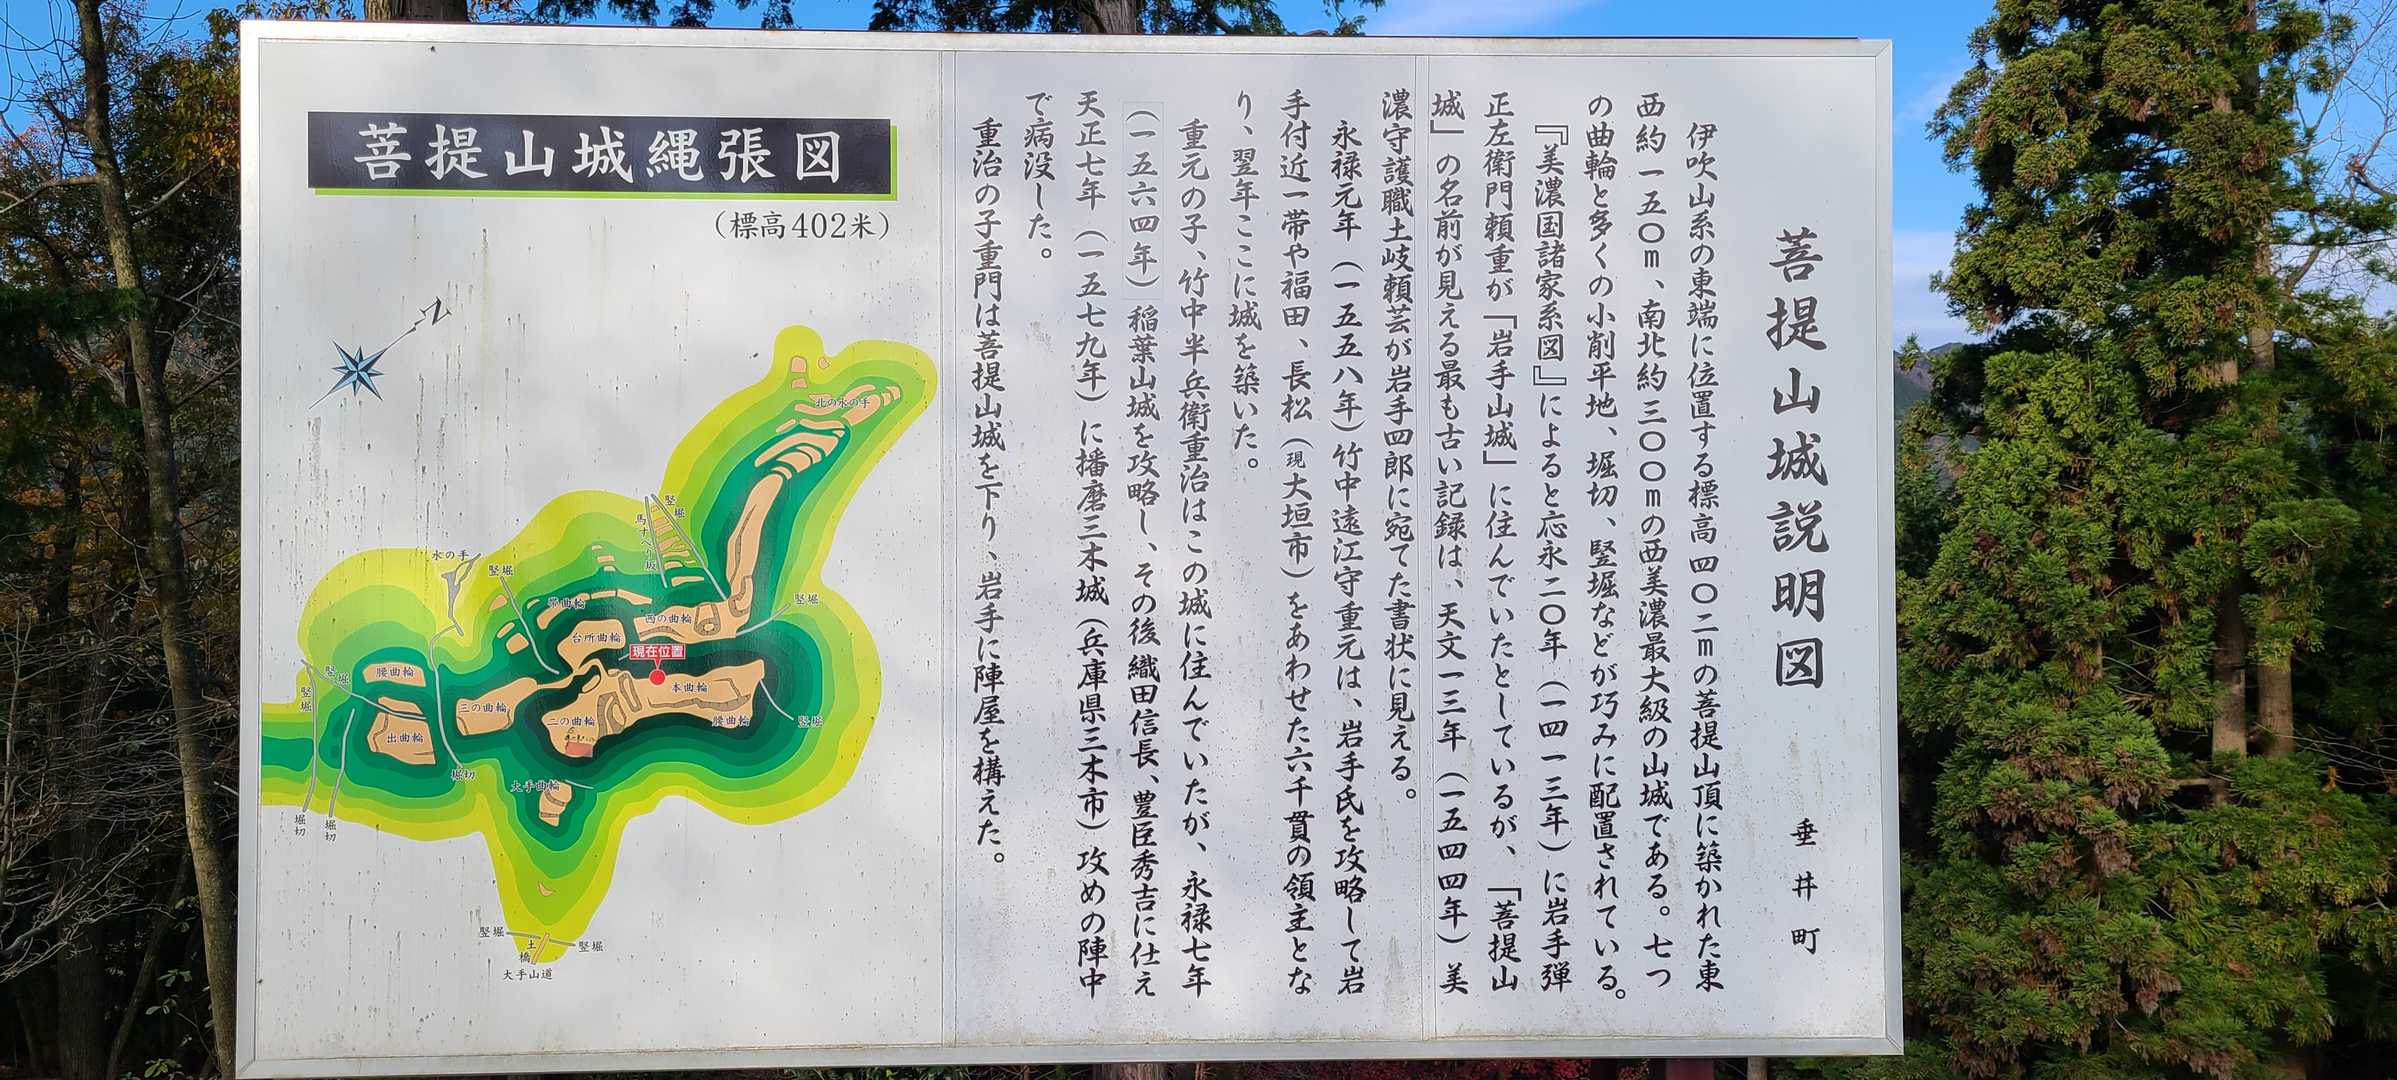 菩提山城説明図
垂井町
伊吹山系の東端に位置する標高四〇二mの菩提山頂に築かれた東
西約一五〇m、南北約三〇〇mの西美濃最大級の山城である。七つ
の曲輪と多くの小削平地、堀切、竪堀などが巧みに配置されている。
『美濃国諸家系図』によると応永二〇年（一四一三年）に岩手弾
正左衛門頼重が「岩手山城」に住んでいたとしているが、「菩提山
城」の名前が見える最も古い記録は、天文一三年（一五四四年）美
濃守護職土岐頼芸が岩手四郎に宛てた書状に見える。
永禄元年（一五五八年）竹中遠江守重元は、岩手氏を攻略して岩
手付近一帯や福田、長松（現大垣市）をあわせた六千貫の領主とな
り、翌年ここに城を築いた。
重元の子、竹中半兵衛重治はこの城に住んでいたが、永禄七年
（一五六四年）稲葉山城を攻略し、その後織田信長、豊臣秀吉に仕え
天正七年（一五七九年）に播磨三木城（兵庫県三木市）攻めの陣中
で病没した。
重治の子重門は菩提山城を下り、岩手に陣屋を構えた。
菩提山城縄張図
（標高402米）
N
北の水の手
竪堀
馬すべり坂
水の手
竪堀
帯曲輪
西の曲輪
竪堀
台所曲輪
現在位置
本曲輪
腰曲輪
竪堀
竪堀
竪堀
腰曲輪
三の曲輪
二の曲輪
出曲輪
堀切
大手曲輪
堀切
堀切
竪堀
土橋
竪堀
大手山道